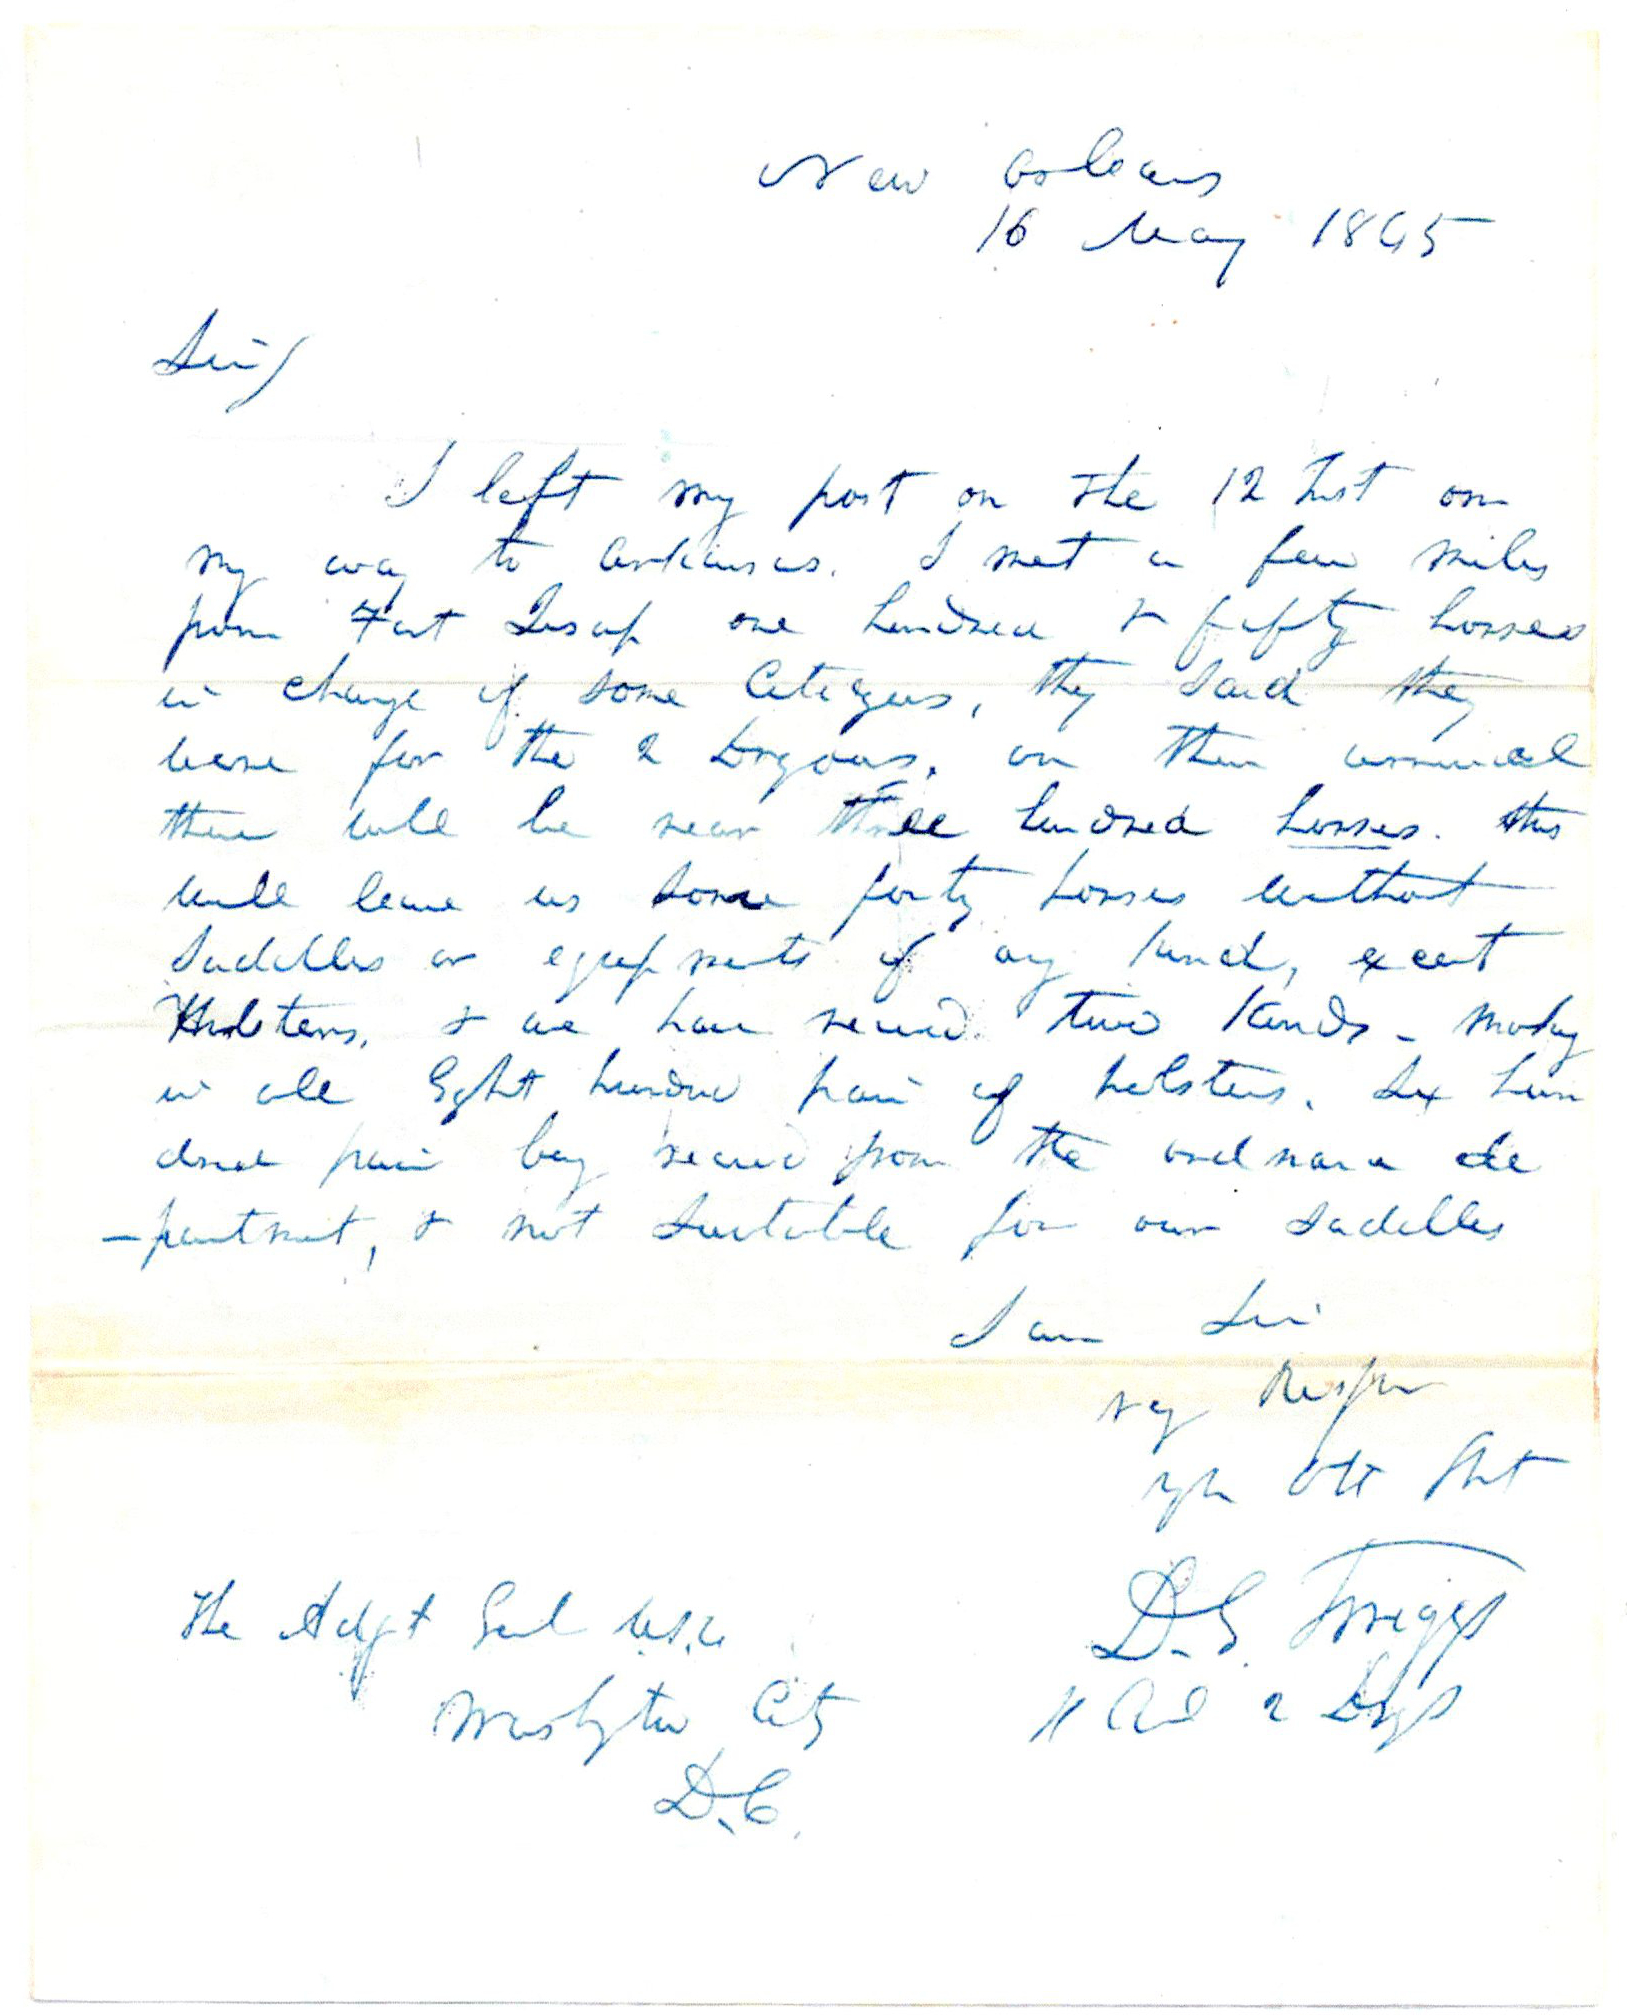 New Orleans
16 May 1845
Sir/
I left my post on the 12 Inst on
my way to Arkansas. I met a few miles
from Fort Jesup one hundred & fifty horses
in charge of some Citizens, they said they
were for the 2 Dragoons, on their arrival
there will be near three hundred horses. this
will leave us some forty horses without
Saddles or equipments of any kind, except
Holsters, & we have received two kinds - making
in all Eight hundred pair of holsters. Six hun
dred pair being received from the ordnance de
-partment, & not Suitable for our Saddles
I am Sir
Very Respy
yr Obt Svt
D. E. Twiggs
Col 2 Drgs
The Adjt Genl U.S.A
Washington City
D.C.